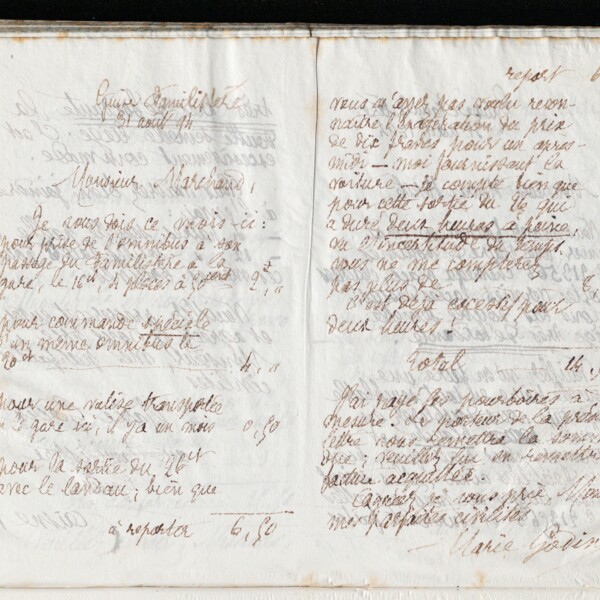 Guise Familistère
31 août 94
Monsieur Marchand,
Je vous dois ce mois-ci:
pour prise de l'omnibus à son
passage du Familistère à la
gare, le 16 ct, 4 places à 50 cent 2 f „
pour commande spéciale
d'un même omnibus le
20 ct 4, „
pour une valise transportée
gare ici, il y a un mois 0,50
pour la sortie du 26 ct
avec le landau; bien que
à reporter 6,50
report 6
vous n'ayez pas voulu recon-
naître l'exagération du prix
de dix francs pour un après-
midi — moi fournissant la
voiture — je compte bien que
pour cette sortie du 26 qui
a duré deux heures à peine,
vu l'incertitude du temps,
vous ne me compterez
pas plus de 8,
C'est déjà excessif pour
deux heures.
Total 14,
J'ai payé les pourboires à
mesure. Le porteur de la présen
lettre vous remettra la somme
due; veuillez lui en remettre
facture acquittée.
Agréez je vous prie, Mons
mes parfaites civilités
Marie Godin